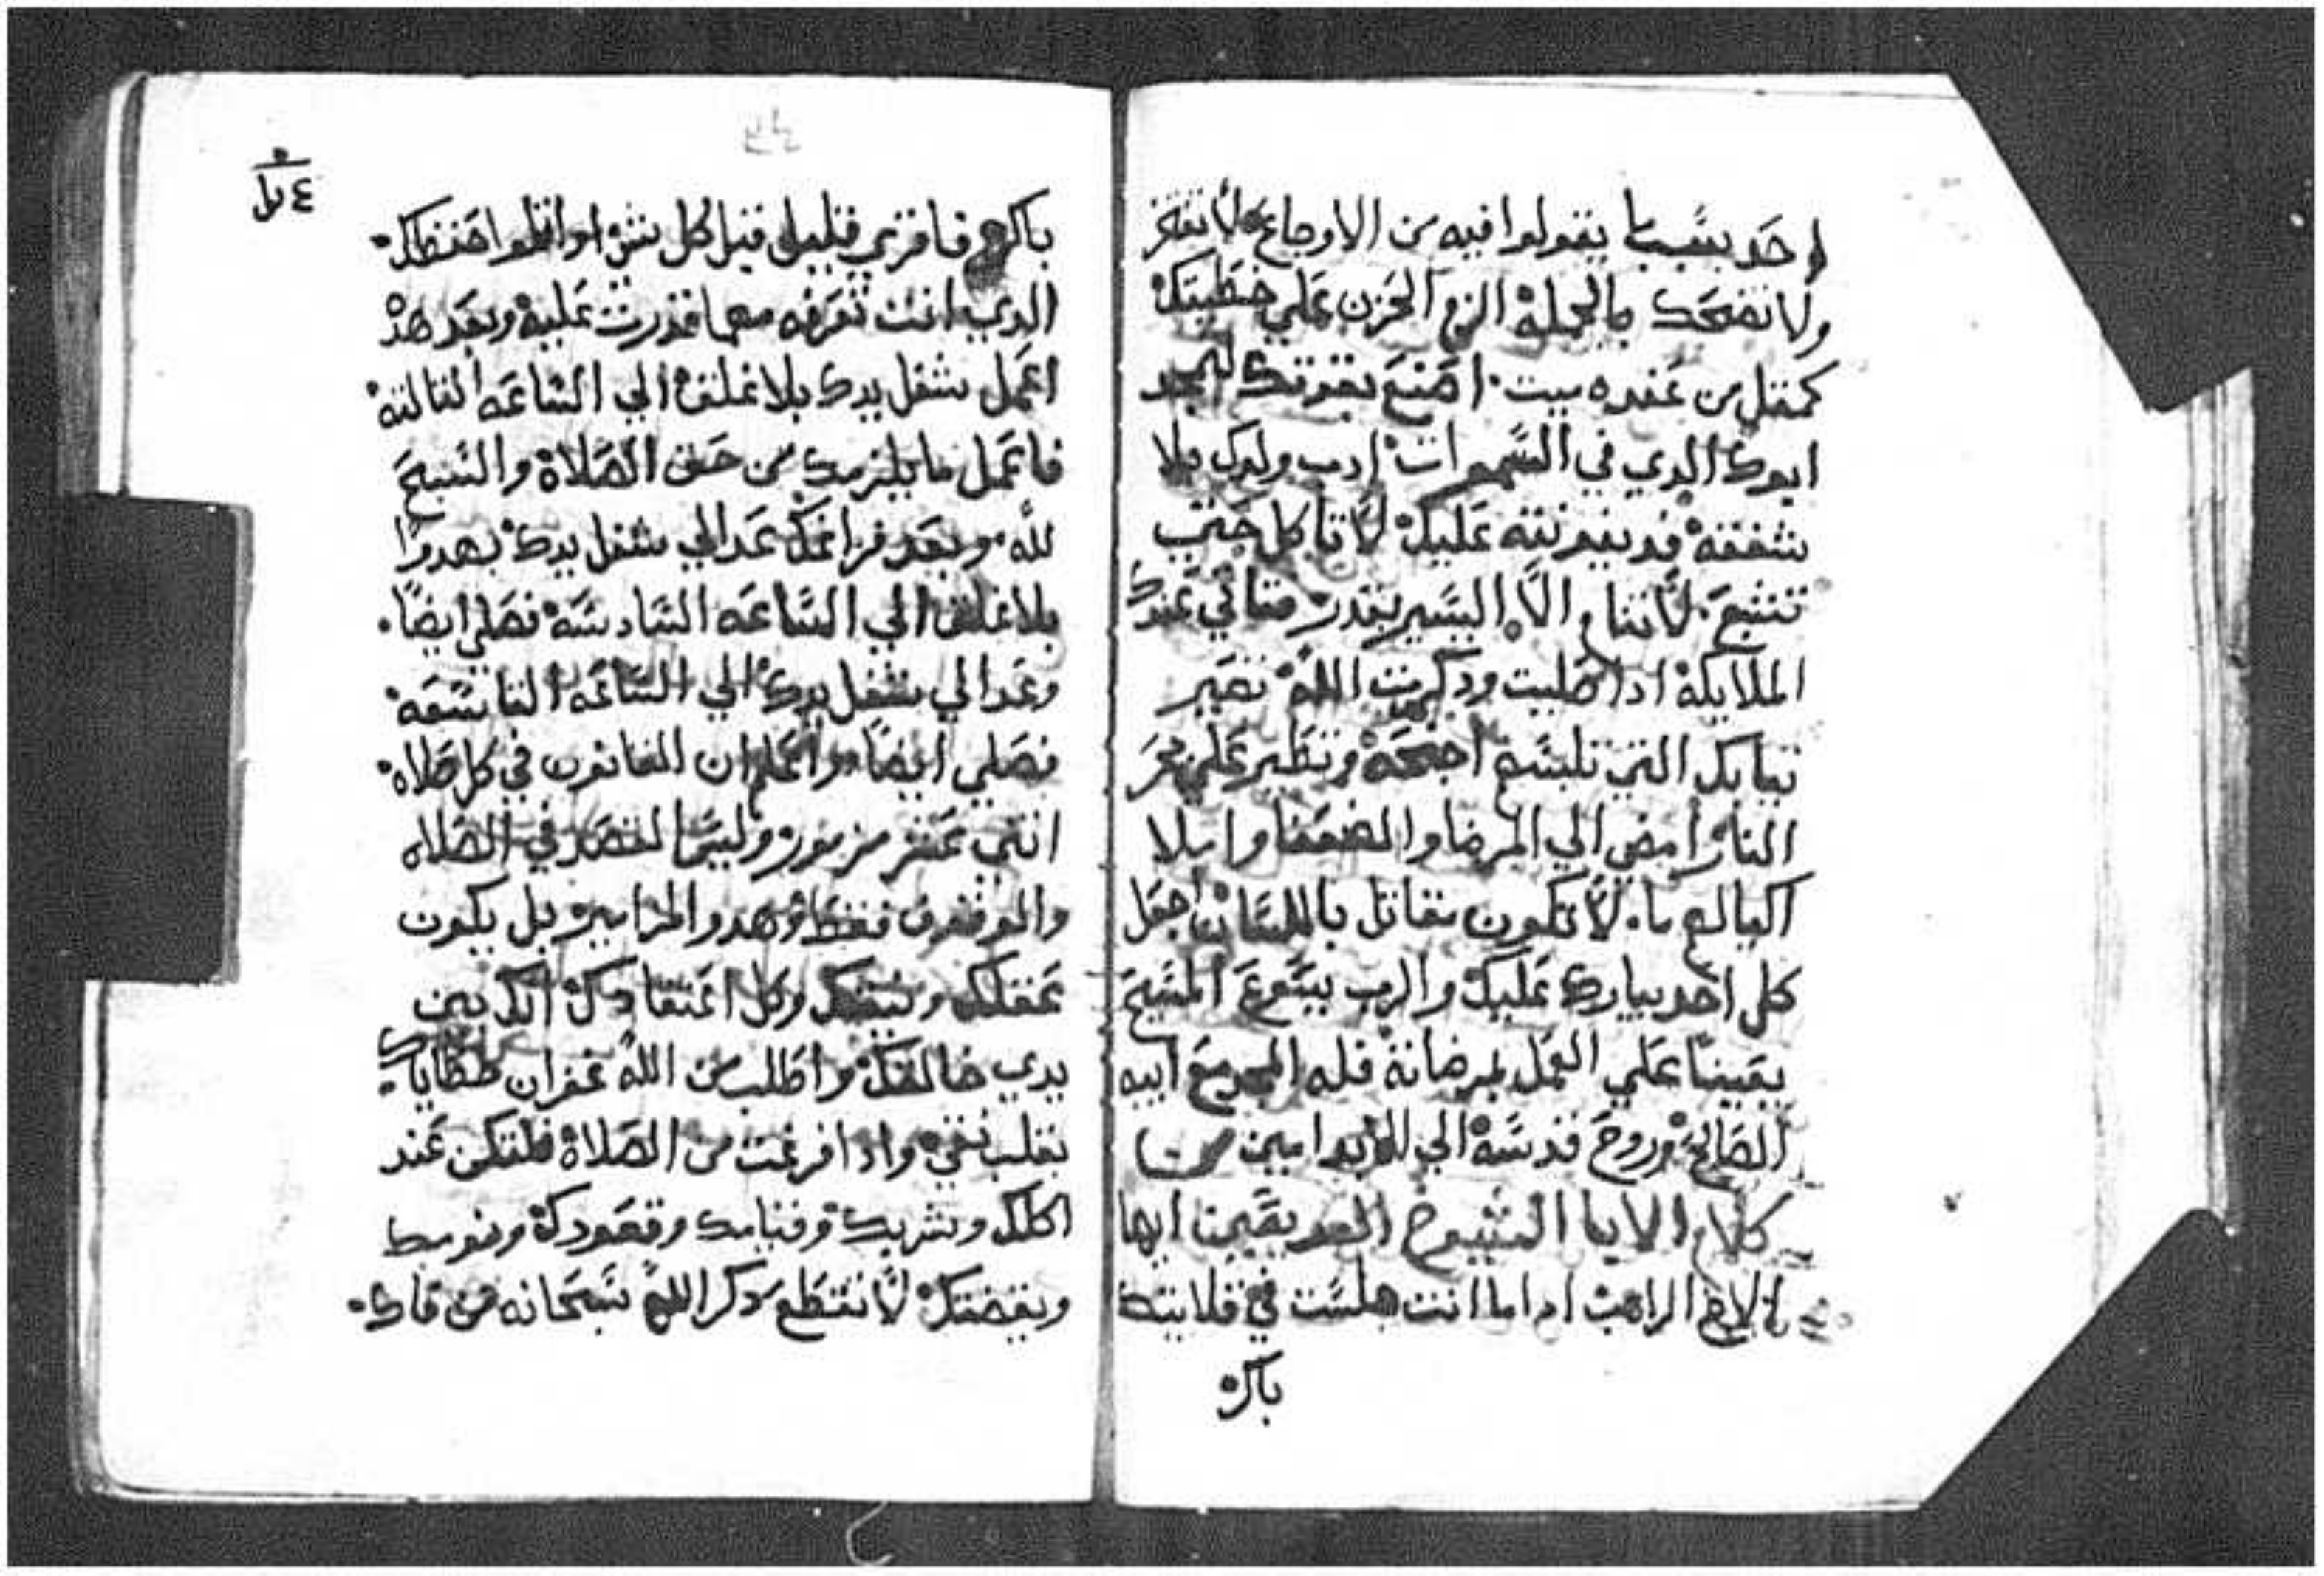 احد بسبب ما يقولوا فيه من الاوجاع لا تفتخر
ولا تضحك بالجملة الزم الحزن علي خطيتك
كمثل من عنده ميت اصنع بقوتك ليمجد
ابوك الدي في السموات ادب ولدك بلا
شفقه عليك لا تاكل حتي
تشبع لاننا والا اليسير بقدر عندك
الملايكة ادا صليت ودكرت الله تصير
تيابك التي تلبسهم اجنحة وتطير علي بحر
النار امضي الي المرضا والضعفا واملا
اكيالهم ما. لا تكون تقاتل باللسان اجعل
كل احد يبارك عليك والرب يسوع المسيح
يعيننا علي العمل بمرضاته فله المجد مع ابيه
الصالح وروح قدسه الي الابد امين
كلام الابا الشيوخ القديسين ايها
الاخ الراهب اداما انت جلست في قلايتك
باكر
٤
باكر فاقري قليل قبل كل شي او اتلوا حفظك
الدي انت تعرفه مهما قدرت عليه وبعد هدا
اعمل شغل يدك بلا غفلة الي الساعه التالته
فاعمل ما يلزمك من حق الصلاة والتسبيح
لله وبعد فراغك عد الي شغل يدك بهدوا
بلا غفلة الي الساعه السادسة فصلي ايضا.
وعد الي شغل يدك الي الساعه التاسعه
فصلي ايضا واعلم ان القانون في كل صلاه
اتني عشر مزمور وليس القصد في الصلاه
والوقوف فقط وهدو المزامير بل يكون
عقلك وكل اعتقادك انك بين
يدي خالقك واطلب من الله غفران خطاياك
بقلب نقي وادا فرغت من الصلاة فلتكن عند
اكلك وشربك وقيامك وقعودك ونومك
ويقضتك لا تقطع دكر الله سبحانه من فاك